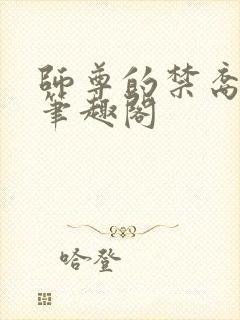 師尊的禁脔
筆趣閣
哈登